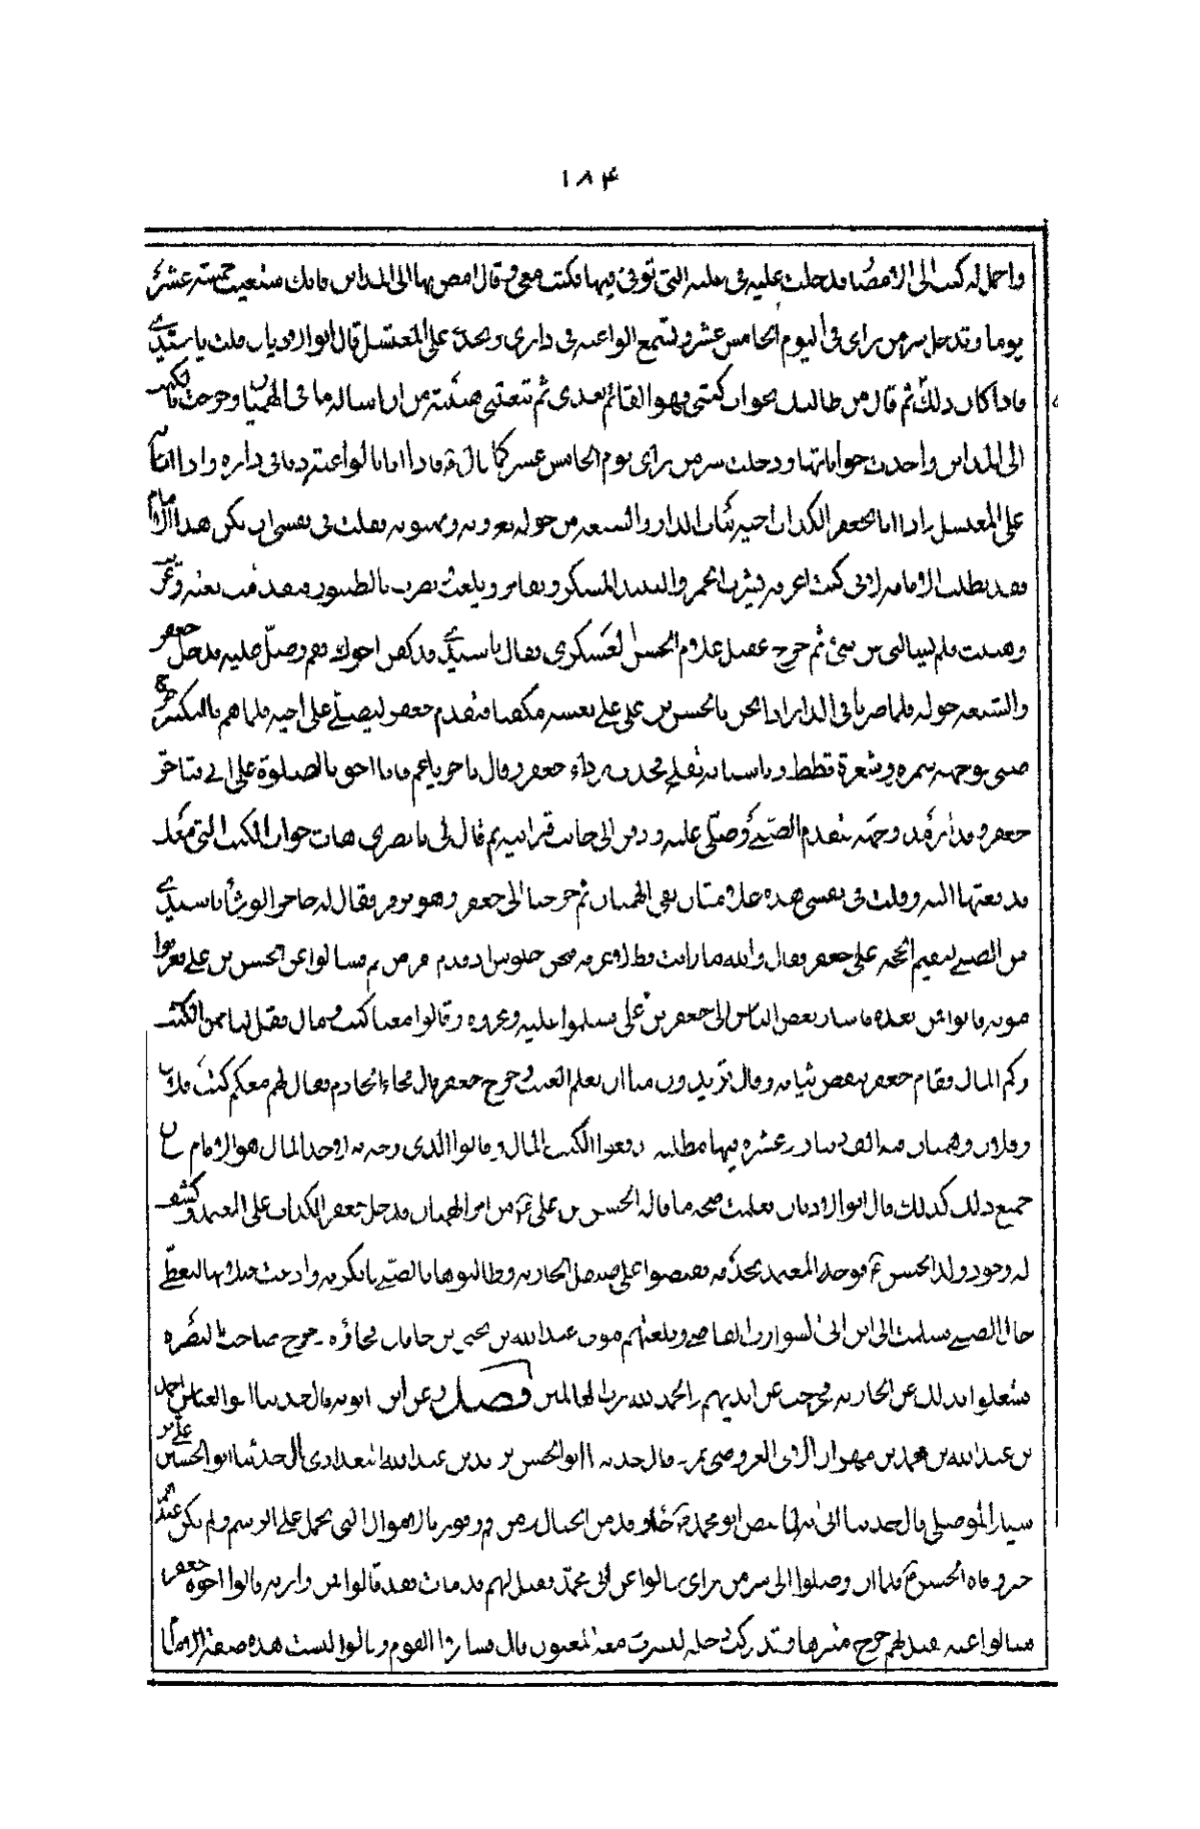 ۱۸۴
واحمل له كتبه الى الامصار فدخلت عليه فى علته التى توفى فيها فكتب معى وقال امض بها الى المداين فانك ستغيب خمسة عشر
يوما وتدخل سر من راى فى اليوم الخامس عشر وتسمع الواعيه فى دارى وتجدنى على المغتسل قال ابوالاديان فقلت يا سيدى
فاذا كان ذلك ثم قال من طالبك بجواب كتبى فهو القائم بعدى ثم منعتنى هيبته من ان اساله ما فى الهميان وخرجت بالكتب
الى المداين واخذت جواباتها ودخلت سر من راى يوم الخامس عشر كما قال ۴ فاذا انا بالواعية فى داره واذا انا به
على المغتسل واذا انا بجعفر الكذاب اخيه بباب الدار والشيعه من حوله يعزونه ويهنونه فقلت فى نفسى ان يكن هذا الامام
فقد بطلت الامامه لانى كنت اعرفه يشرب الخمر والنبيذ المسكر ويقامر ويلعب بالطنبور فتقدمت فعزيته
وهنيت فلم يسالنى عن شئ ثم خرج عقيد غلام الحسن العسكرى فقال يا سيدى قد كفن اخوك فقم وصل عليه فدخل جعفر
والشيعه حوله فلما صرنا فى الدار اذا نحن بالحسن بن على على نعشه مكفنا فتقدم جعفر ليصلى على اخيه فلما هم بالتكبير خرج
صبى بوجهه سمره وشعره قطط وباسنانه تفليج فجذب رداء جعفر وقال تاخر يا عم فانا احق بالصلوة على ابى فتاخر
جعفر وقد اربد وجهه فتقدم الصبى وصلى عليه ودفن الى جانب قبر ابيه ثم قال لى يا بصرى هات جواب الكتب التى معك
فدفعتها اليه وقلت فى نفسى هذه علامتان بقى الهميان ثم خرجنا الى جعفر وهو يزفر فقال له حاجز الوشا يا سيدى
من الصبى ليقيم الحجه على جعفر فقال والله ما رايت قط ولا عرفه فنحن جلوس اذ قدم فسالوا عن الحسن بن على فعرفوا
موته قالوا فمن بعده فاشار بعض الناس الى جعفر بن على فسلموا عليه وعزوه وقالوا معنا كتب ومال فقل لنا ممن الكتب
وكم المال فقام جعفر ينفض ثيابه وقال تريدون منا ان نعلم الغيب وخرج جعفر قال فجاء الخادم فقال لهم معكم كتب فلان
وفلان وهميان فيه الف دينار عشره فيها مطليه دفعوا الكتب والمال وقالوا الذى وجه به لاخذ المال هو الامام
جميع ذلك كذلك قال ابوالاديان فعلمت صحه ما قاله الحسن بن على ۴ من امر الهميان فدخل جعفر الكذاب على المعتمد وكشف
له وجود ولد الحسن ۴ فوجه المعتمد بخدمه فقبضوا على صيقل الجاريه وطالبوها بالصبى فانكرته وادعت حبلا بها لتغطى
حال الصبى فسلمت الى ابن ابى الشوارب القاضى وبلغهم موت عبدالله بن يحيى بن خاقان فجاءه وخروج صاحب البصره
فشغلوا بذلك عن الجاريه فخرجت عن ايديهم والحمد لله رب العالمين فصل وعن ابن بابويه قال حدثنا ابوالعباس احمد
بن عبدالله بن محمد بن مهران الابى العروضى قال حدثنا ابوالحسن بن عبدالله البغدادى قال حدثنا ابوالحسين على بن
سيار الموصلى قال حدثنا ابى لما قبض ابو محمد ۴ وقد من الجبال ومن قم وفود بالاموال التى تحمل على الرسم ولم يكن عندهم
خبر وفاه الحسن ۴ فلما ان وصلوا الى سر من راى سالوا عن ابى محمد فقيل لهم قد مات فقد قالوا فمن وارثه قالوا اخوه جعفر
فسالوا عنه فقيل لهم خرج متنزها وقد ركب دجله ليشرب معه المغنون قال فتشاور القوم وقالوا ليست هذه صفة الامام